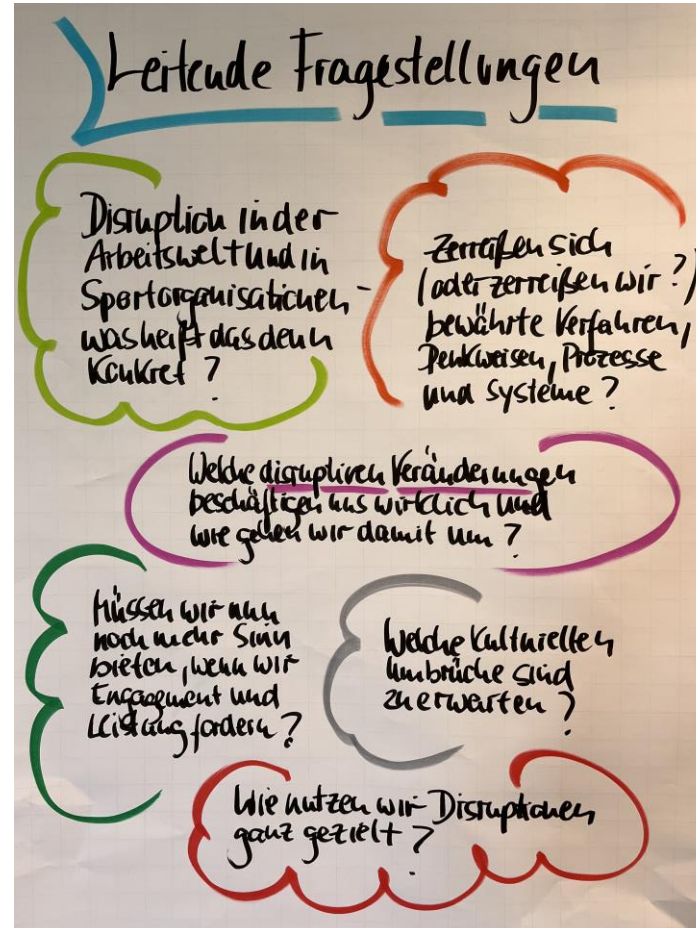 Leitende Fragestellungen
Disruption in der
Arbeitswelt und in
Sportorganisationen -
was heißt das denn
konkret ?
Zerreißen sich
(oder zerreißen wir ?)
bewährte Verfahren,
Denkweisen, Prozesse
und Systeme ?
Welche disruptiven Veränderungen
beschäftigen uns wirklich und
wie gehen wir damit um ?
Müssen wir nun
noch mehr Sinn
bieten, wenn wir
Engagement und
Leistung fordern ?
Welche kulturellen
Umbrüche sind
zu erwarten ?
Wie nutzen wir Disruptionen
ganz gezielt ?